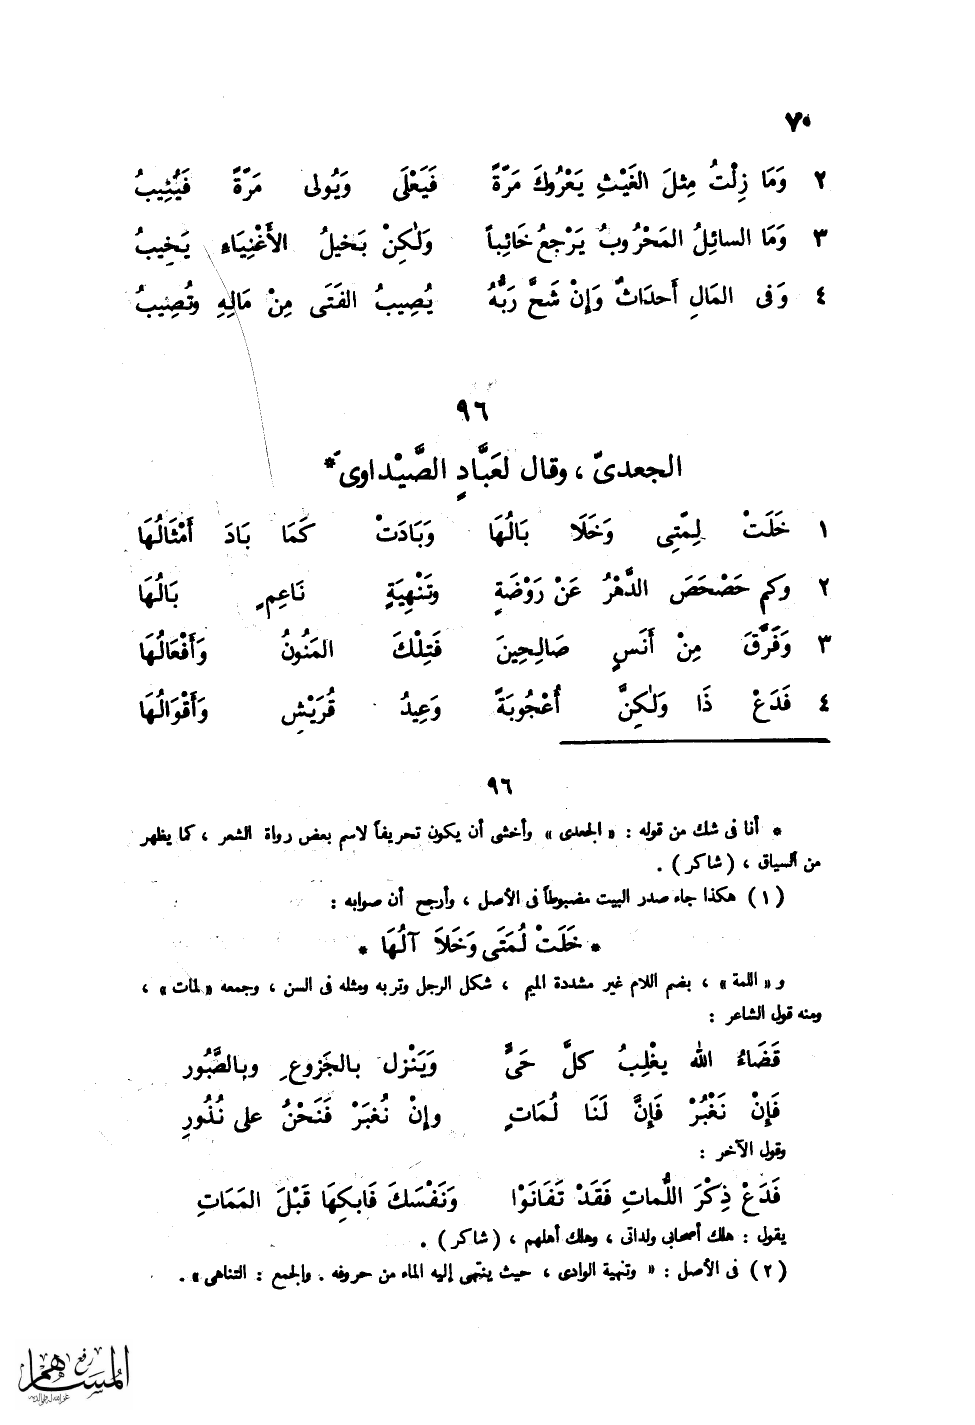 ٧٠
٢ وَمَا زِلْتُ مِثلَ الغَيْثِ يَعْرُوكَ مَرَّةً فَيَعْلَى وَيُولى مَرَّةً فَيُثِيبُ
٣ وَمَا السائِلُ المَحْرُوبُ يَرْجعُ خَائِباً وَلٰكِنْ بَخيلُ الأَغْنِيَاءِ يَخِيبُ
٤ وَفى المَالِ أَحدَاثٌ وَإِنْ شَحَّ رَبُّهُ يُصِيبُ الفَتَى مِنْ مَالِهِ وتُصِيبُ
٩٦
الجعدىّ ، وقال لعَبَّادٍ الصَّيْداوىّ *
١ خَلَتْ لِمَّتِى وَخَلَا بَالُهَا وَبَادَتْ كَمَا بَادَ أَمْثَالُهَا
٢ وَكم حَصْحَصَ الدَّهْرُ عَنْ رَوْضَةٍ وتَنْهِيَةٍ نَاعِمٍ بَالُهَا
٣ وَفَرَّقَ مِنْ أَنَسٍ صَالِحِينَ فَتِلْكَ المَنُونُ وَأَفْعَالُهَا
٤ فَدَعْ ذَا وَلٰكِنَّ أُعْجُوبَةً وَعِيدُ قُرَيْشٍ وَأَقْوَالُهَا
٩٦
* أنا فى شك من قوله : « الجعدى » وأخشى أن يكون تحريفاً لاسم بعض رواة الشعر ، كما يظهر
من السياق ، ( شاكر ) .
( ١ ) هكذا جاء صدر البيت مضبوطاً فى الأصل ، وأرجح أن صوابه :
* خَلَتْ لُمَتَى وَخَلاَ آلُهَا *
و « اللمة » ، بضم اللام غير مشددة الميم ، شكل الرجل وتربه ومثله فى السن ، وجمعه « لمات » ،
ومنه قول الشاعر :
قَضَاءُ الله يغْلِبُ كلَّ حَىٍّ وَيَنْزل بالجَزوعِ وبالصَّبُور
فَإِنْ نَغْبُرْ فَإِنَّ لَنَا لُمَاتٍ وإنْ نُغبَرْ فَنَحْنُ على نُذُورِ
وقول الآخر :
فَدَعْ ذِكْرَ اللُّماتِ فَقَدْ تَفَانَوْا وَنَفْسَكَ فَابكِهَا قَبْلَ المَمَاتِ
يقول : هلك أصحابى ولداتى ، وهلك أهلهم ، ( شاكر ) .
( ٢ ) فى الأصل : « وتنهية الوادى ، حيث ينتهى إليه الماء من حروفه . والجمع : التناهى » .
المساهم
رفع